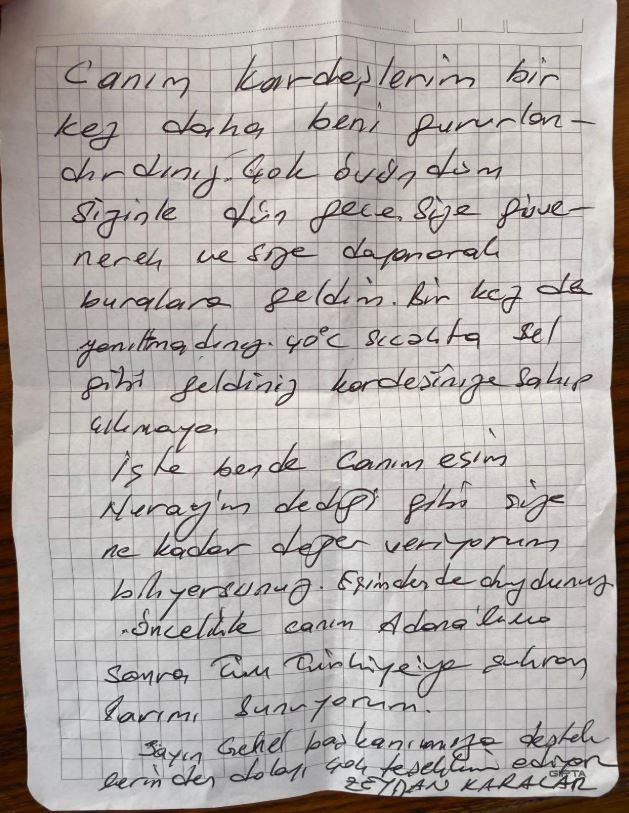 Canım kardeşlerim bir
kez daha beni gururlan-
dırdınız. Çok övündüm
sizinle dün gece. Size güve-
nerek ve size dayanarak
buralara geldim. Bir kez de
yanıltmadınız. 40°C sıcakta sel
gibi geldiniz kardeşinize sahip
çıkmaya.
İşte bende Canım eşim
Nuray'ın dediği gibi size
ne kadar değer veriyorum
biliyorsunuz. Eşimden de duydunuz
.Öncelikle canım Adana'lıma
sonra Tüm Türkiye'ye şükran
larımı sunuyorum.
Sayın Genel başkanımıza destek
lerinden dolayı çok teşekkür ediyorum
ZEYDAN KARALAR
GIPTA